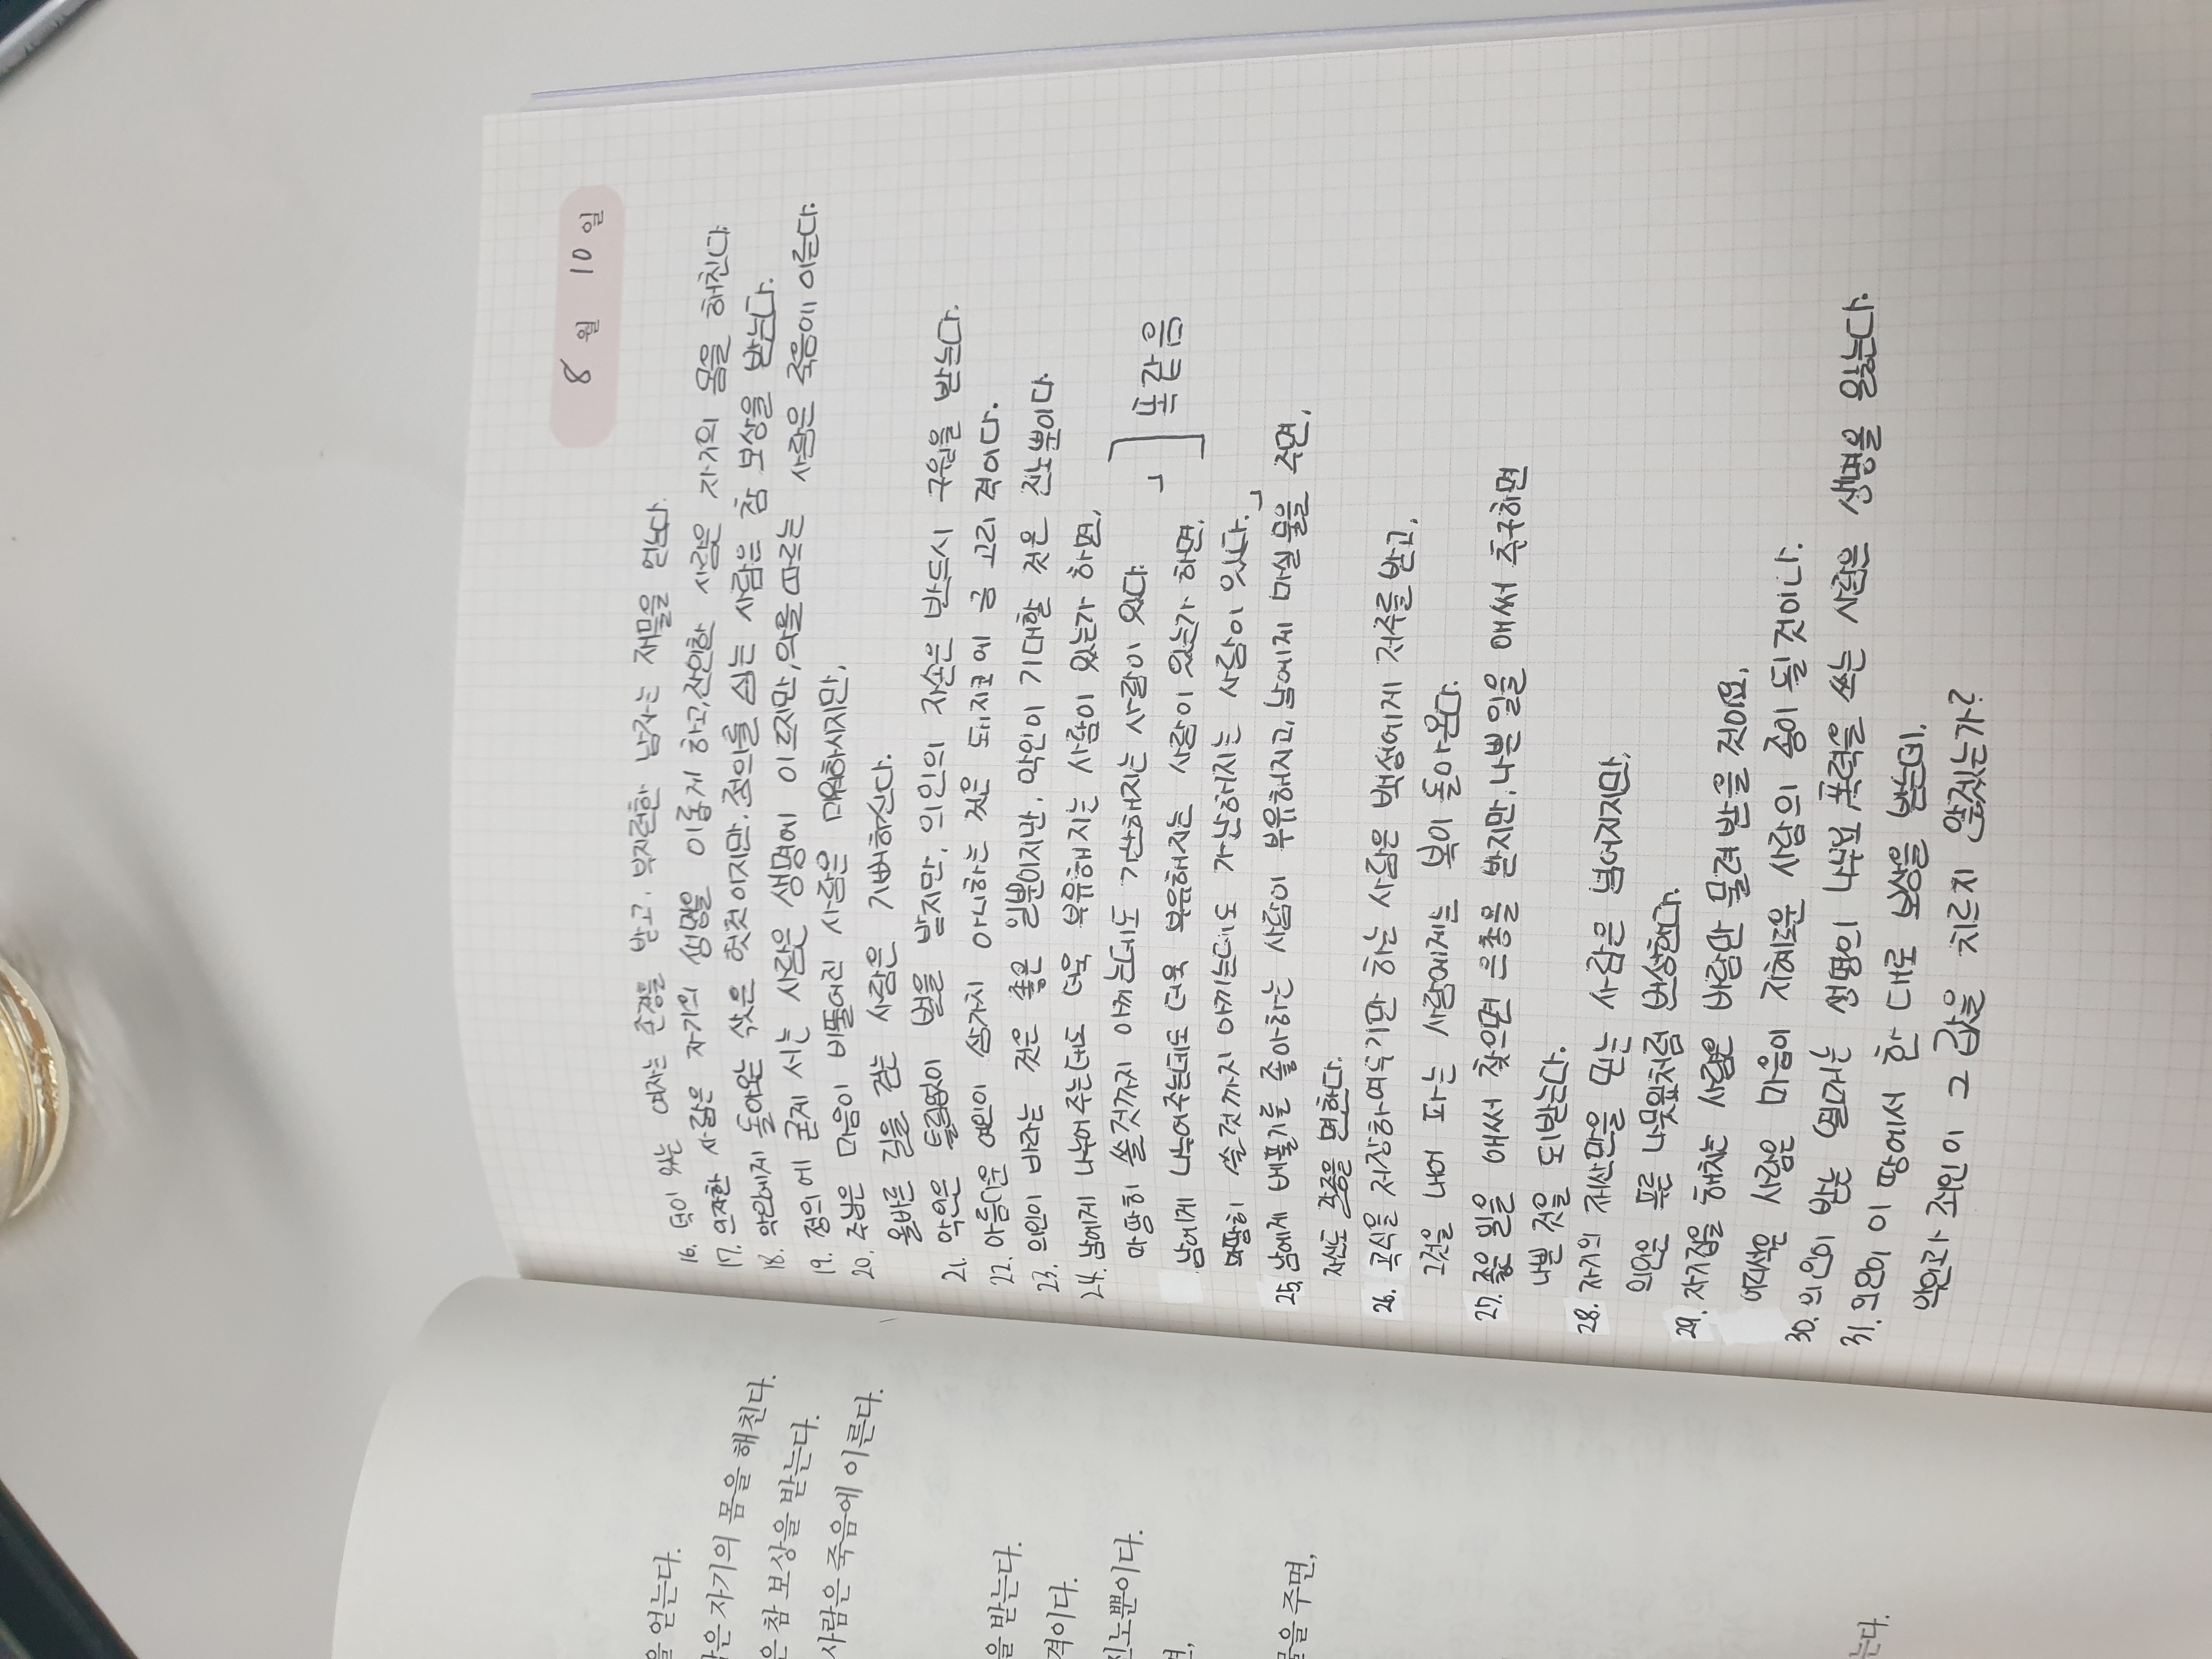 8 월 10 일
16. 덕이 있는 여자는 존경을 받고, 부지런한 남자는 재물을 얻는다.
17. 의자한 사람은 자기의 생명을 이롭게 하고, 잔인한 사람은 자기의 몸을 해친다.
18. 악인에게 돌아오는 삯은 헛것이지만, 정의를 심는 사람은 참 보상을 받는다.
19. 정의에 굳게 서는 사람은 생명에 이르지만, 악을 따르는 사람은 죽음에 이른다.
20. 주님은 마음이 비뚤어진 사람은 미워하시지만,
올바른 길을 걷는 사람은 기뻐하신다.
21. 악인은 틀림없이 벌을 받지만, 의인의 자손은 반드시 구원을 받는다.
22. 아름다운 여인이 삼가지 아니하는 것은 돼지코에 금 고리 격이다.
23. 의인이 바라는 것은 좋은 일뿐이지만, 악인이 기대할 것은 진노뿐이다.
24. 남에게 나누어 주는데도 더욱 부유해지는 사람이 있는가 하면,
마땅히 쓸 것까지 아끼는데도 가난해지는 사람이 있다. 」 ] 똑같음
남에게 나누어주는데도 더욱 부유해지는 사람이 있는가 하면,
마땅히 쓸 것까지 아끼는데도 가난해지는 사람이 있다. 」
25. 남에게 베풀기를 좋아하는 사람이 부유해지고, 남에게 마실 물을 주면,
자신도 갈증을 면한다.
26. 곡식을 저장하여두기만 하는 사람은 백성에게 저주를 받고,
그것을 내어 파는 사람에게는 복이 돌아온다.
27. 좋은 일을 애써 찾으면 은총을 받지만, 나쁜 일을 애써 추구하면
나쁜 것을 되받는다.
28. 자기의 재산만을 믿는 사람은 넘어지지만,
의인은 푸른 나뭇잎처럼 번성한다.
29. 자기집을 해치는 사람은 바람만 물려 받을 것이요,
어리석은 사람은 마음이 지혜로운 사람의 종이 될 것이다.
30. 의인이 받는 열매는 생명의 나무요, 폭력을 쓰는 사람은 생명을 잃는다.
31. 의인이 이 땅에서 한 대로 보상을 받는데,
악인과 죄인이 그 값을 치르지 않겠는가?
을 얻는다.
은 자기의 몸을 해친다.
은 참 보상을 받는다.
사람은 죽음에 이른다.
을 받는다.
격이다.
진노뿐이다.
면,
물을 주면,
는다.